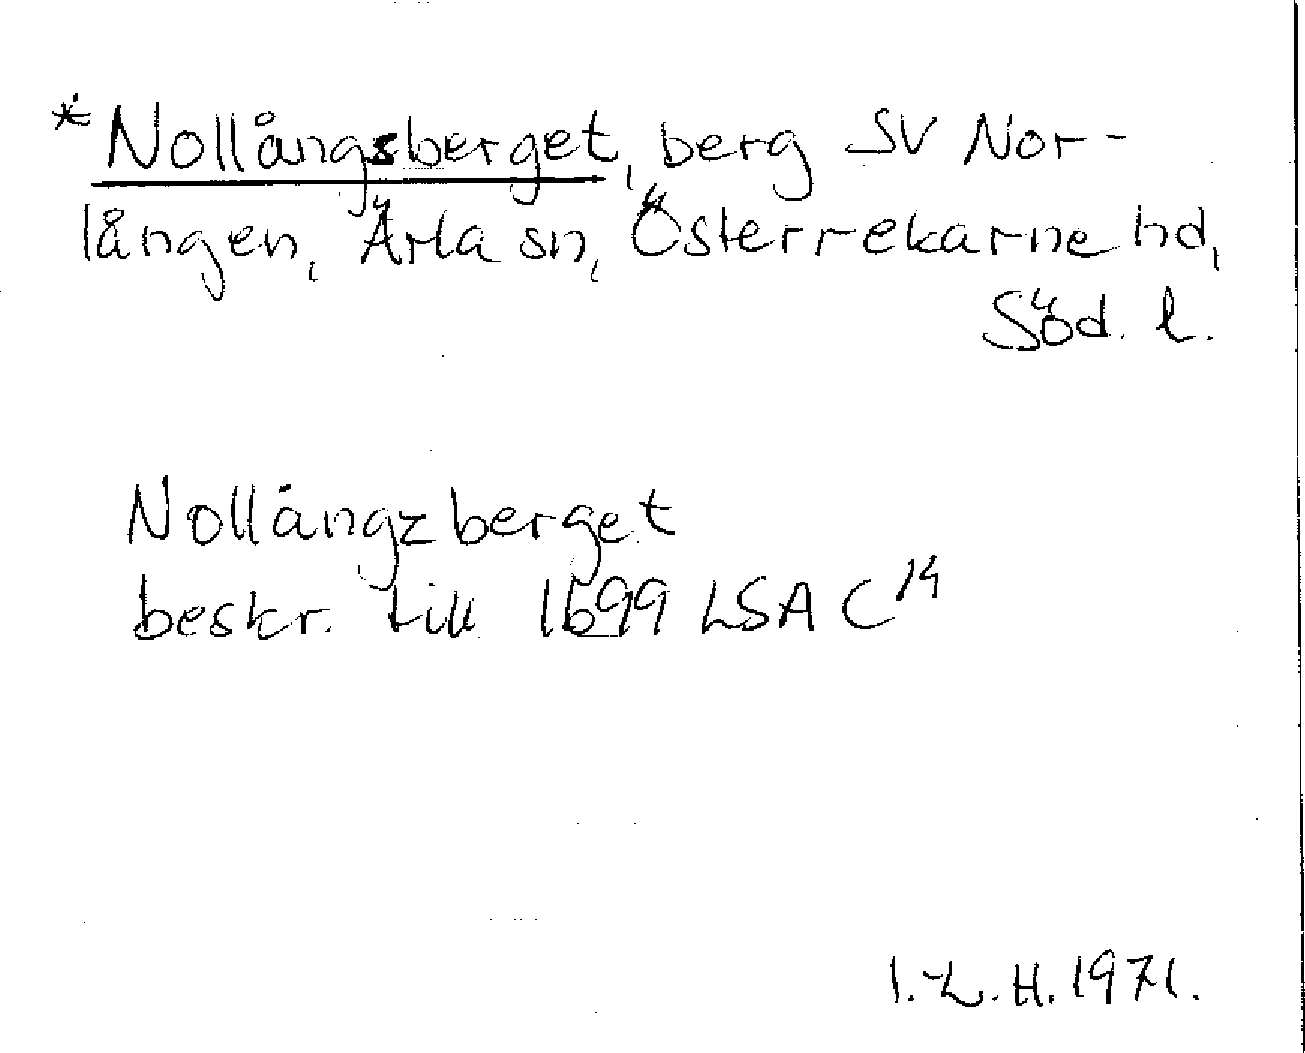 *Nollångsberget, berg SV Nor-
lången, Ärla sn, Österrekarne hd,
Söd. l.
Nollångzberget
beskr. till 1699 LSA C14
I.-L. H. 1971.